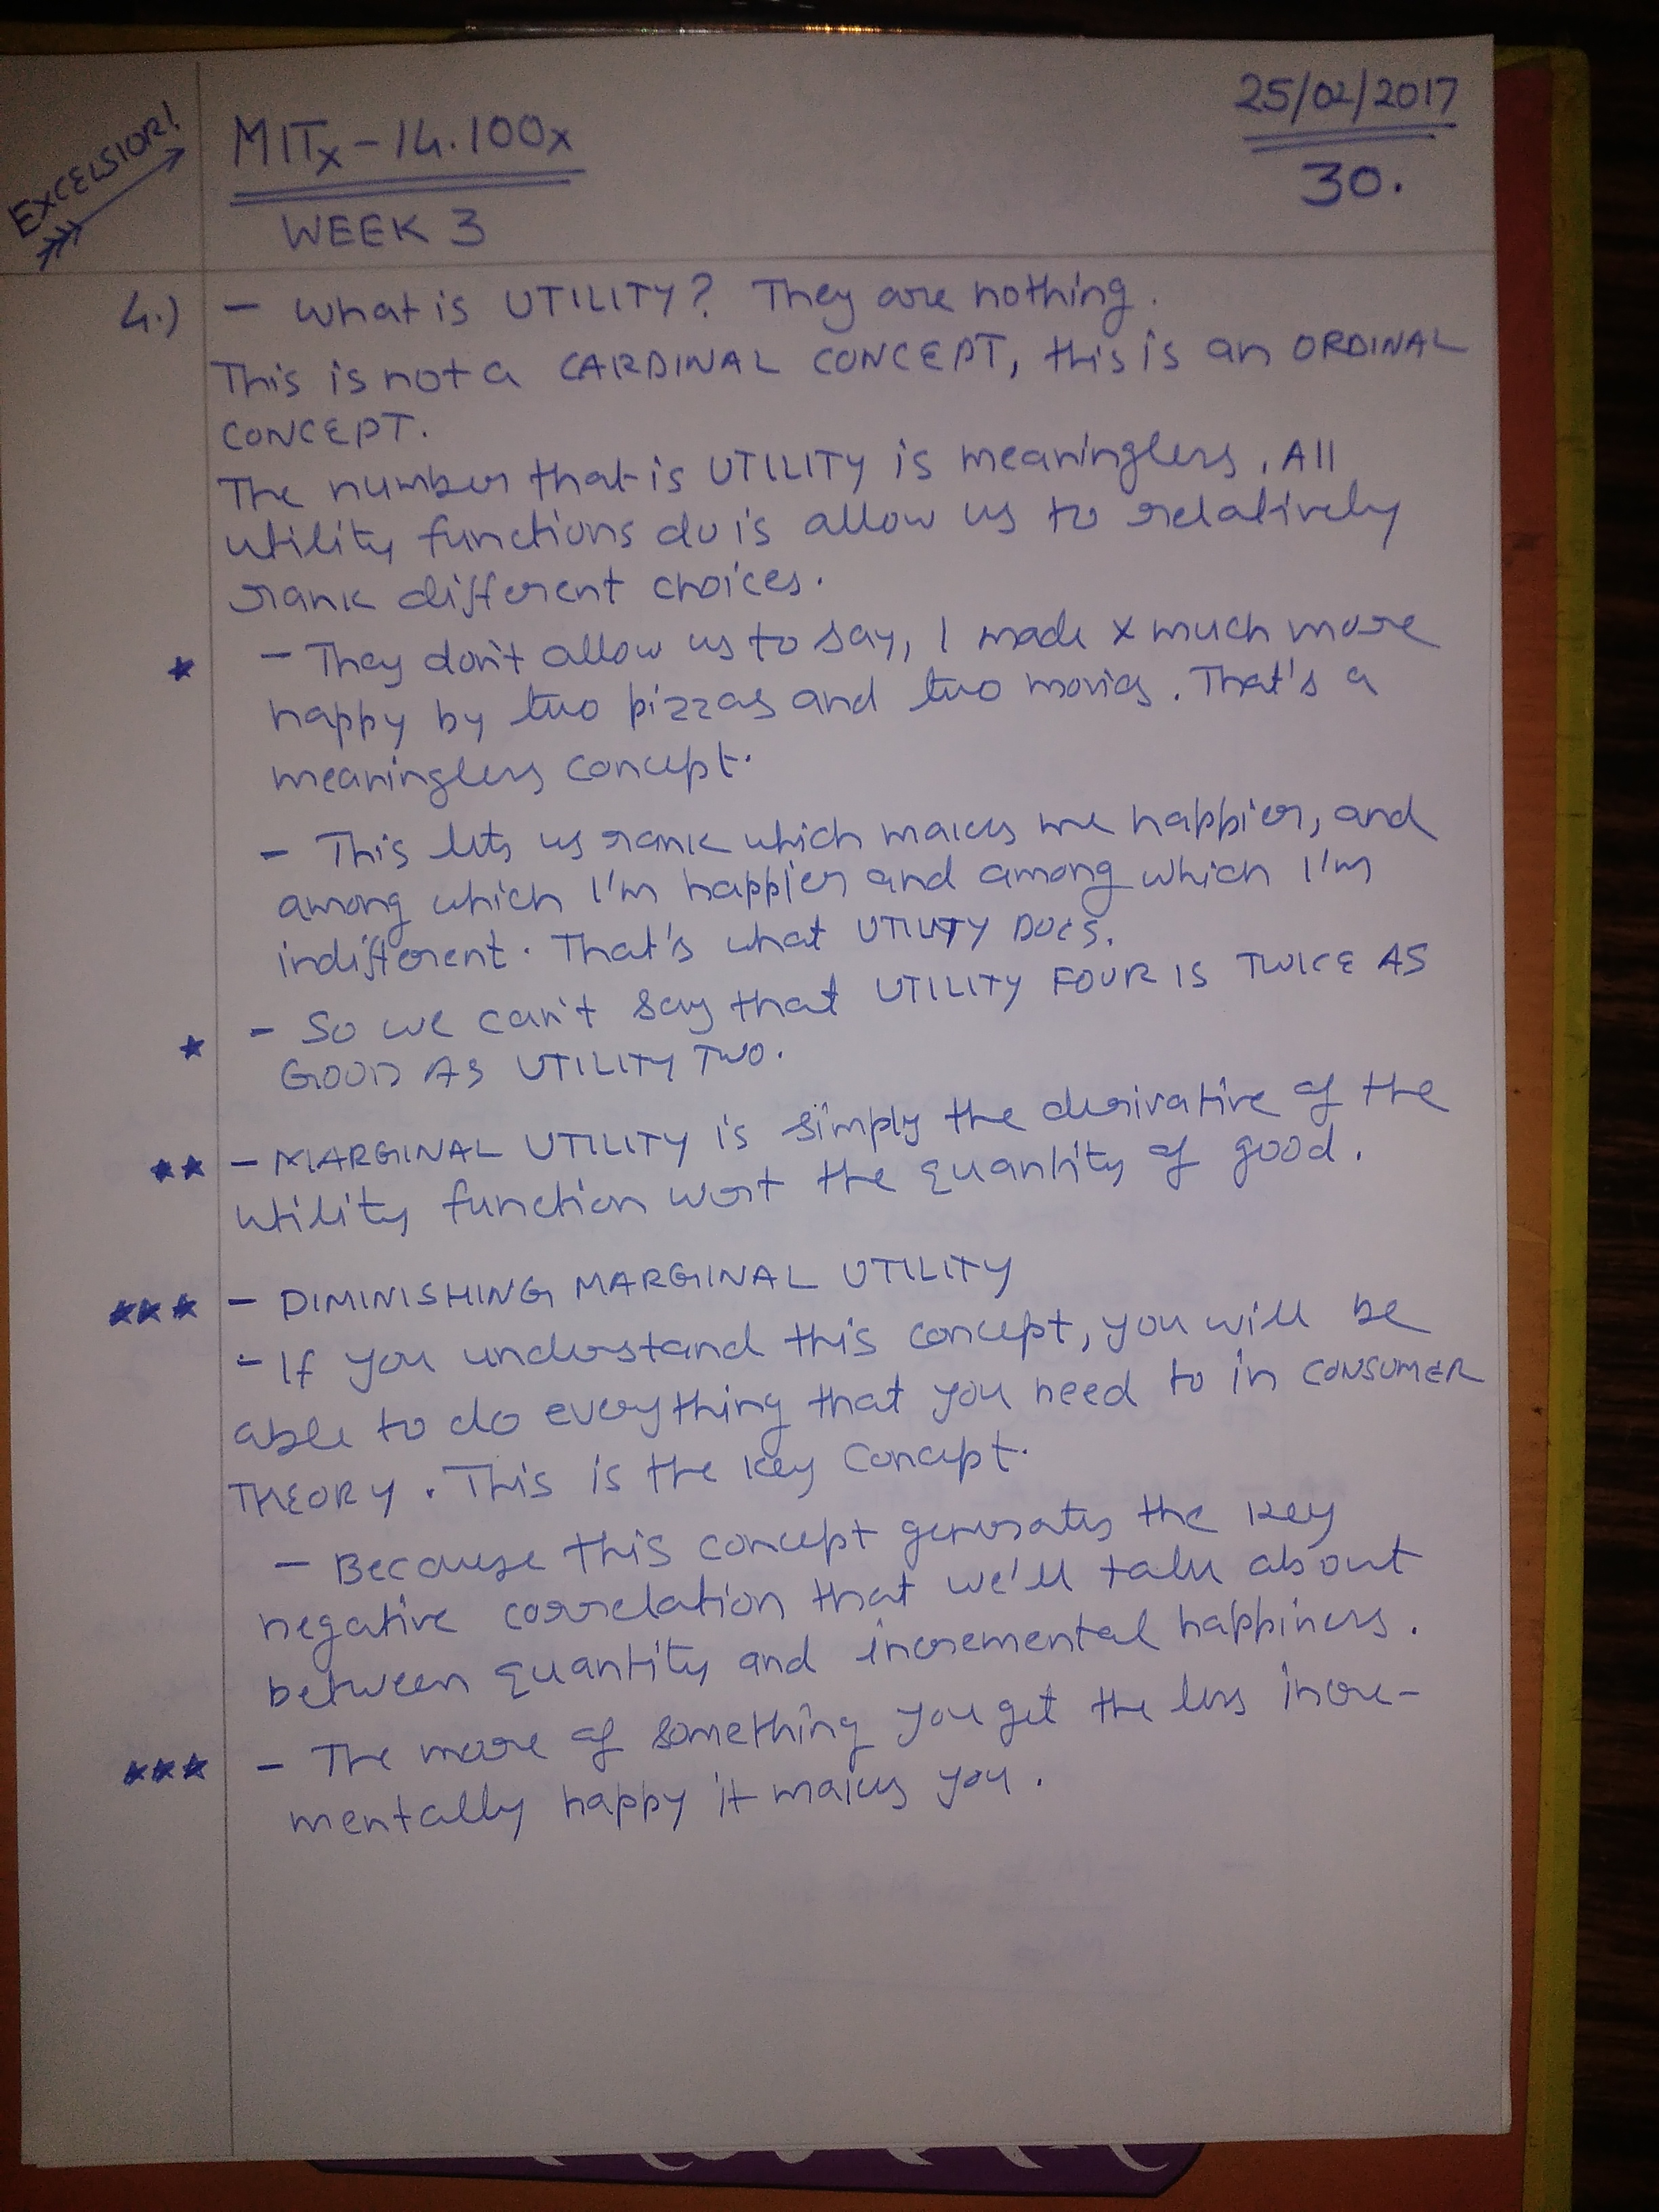 EXCELSIOR!
MITx - 14.100x
WEEK 3
25/02/2017
30.
4.) - What is UTILITY? They are nothing.
This is not a CARDINAL CONCEPT, this is an ORDINAL
CONCEPT.
The number that is UTILITY is meaningless. All
utility functions do is allow us to relatively
rank different choices.
* - They don't allow us to say, I made x much more
happy by two pizzas and two movies. That's a
meaningless concept.
- This lets us rank which makes me happier, and
among which I'm happier and among which I'm
indifferent. That's what UTILITY DOES.
* - So we can't say that UTILITY FOUR IS TWICE AS
GOOD AS UTILITY TWO.
** - MARGINAL UTILITY is simply the derivative of the
utility function wrt the quantity of good.
*** - DIMINISHING MARGINAL UTILITY
- If you understand this concept, you will be
able to do everything that you need to in CONSUMER
THEORY. This is the key concept.
- Because this concept generates the key
negative correlation that we'll talk about
between quantity and incremental happiness.
*** - The more of something you get the less incre-
mentally happy it makes you.